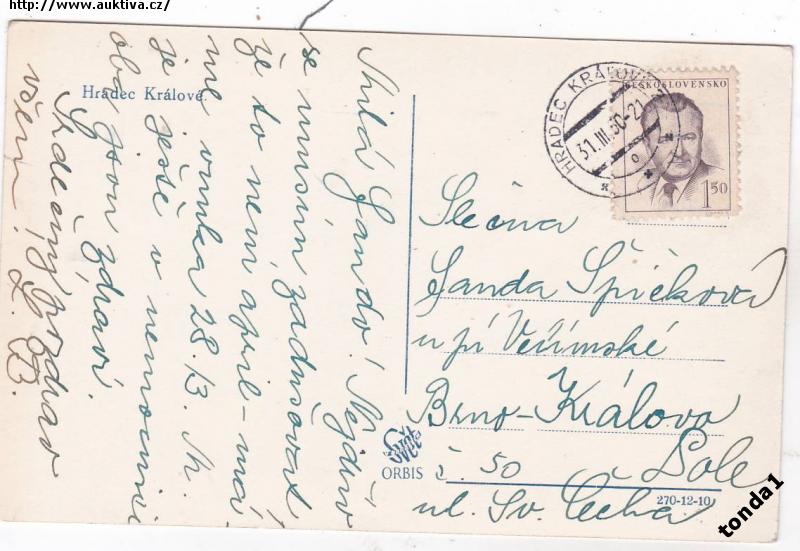 http://www.auktiva.cz/
Hradec Králové
Milá Jando! Nejdřív
se musím zadušovat
že to není apríl – má-
me vnuka 28./3. Th.
je ještě v nemocnici
oba jsou zdraví.
Srdečný pozdrav
všem! L. B.
HRADEC KRÁLOVÉ
31.III.50-21
ČESKOSLOVENSKO
1 50
Slečna
Janda Špičková
u pí Veřímské
Brno-Králova
č. 50 Pole
ul. Sv. Čecha
Svět
ORBIS
270-12-10
tonda1